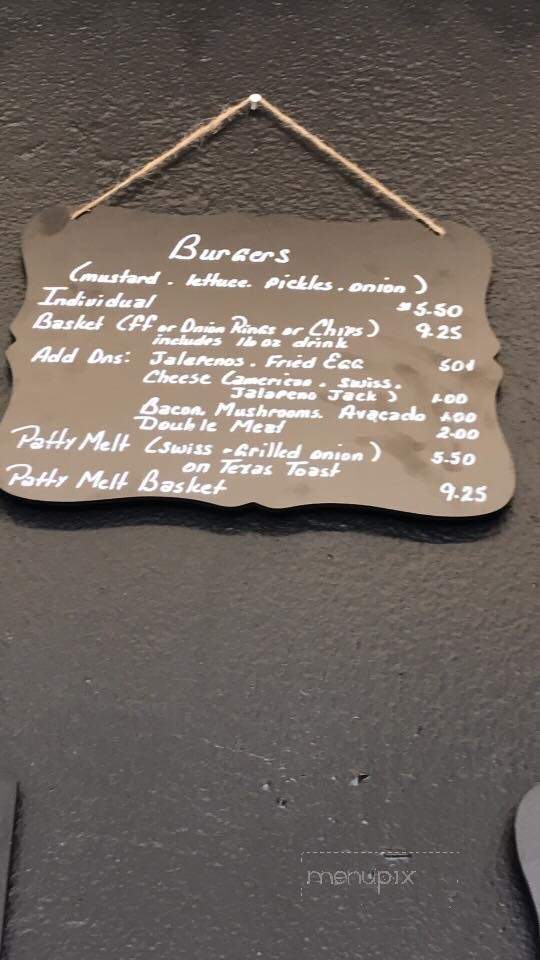 Burgers
(mustard. lettuce. pickles. onion)
Individual $5.50
Basket (FF or Onion Rings or Chips) 9.25
includes 16 oz drink
Add Ons: Jalapenos. Fried Egg 50¢
Cheese (american. swiss.
Jalapeno Jack) 1.00
Bacon. Mushrooms. Avacado 1.00
Double Meat 2.00
Patty Melt (swiss - Grilled onion) 5.50
on Texas Toast
Patty Melt Basket 9.25
menupix